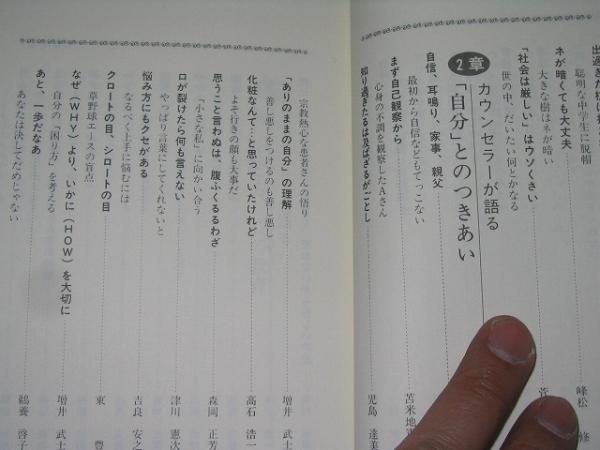 ネが暗くても大丈夫
大きな樹はネが暗い
「社会は厳しい」はウソくさい
世の中、だいたい何とかなる
2章 カウンセラーが語る
「自分」とのつきあい
自信、耳鳴り、家事、親父
最初から自信などもてっこない
まず自己観察から
心身の不調を観察したAさん
児島 達美
知り過ぎたるは及ばざるがごとし
宗教熱心な患者さんの悟り
増井 武士
「ありのままの自分」の理解
善し悪しをつけるのも善し悪し
高石 浩一
化粧なんて…と思っていたけれど
よそ行きの顔も大事だ
森岡 正芳
思うこと言わぬは、腹ふくるるわざ
「小さな私」に向かい合う
津川 憲次
口が裂けたら何も言えない
やっぱり言葉にしてくれないと
吉良 安之
悩み方にもクセがある
なるべく上手に悩むには
東 豊
クロートの目、シロートの目
草野球エースの盲点
増井 武士
なぜ(WHY)より、いかに(HOW)を大切に
自分の「困り方」を考える
鶴養 啓子
あと、一歩だなあ
あなたは決してだめじゃない